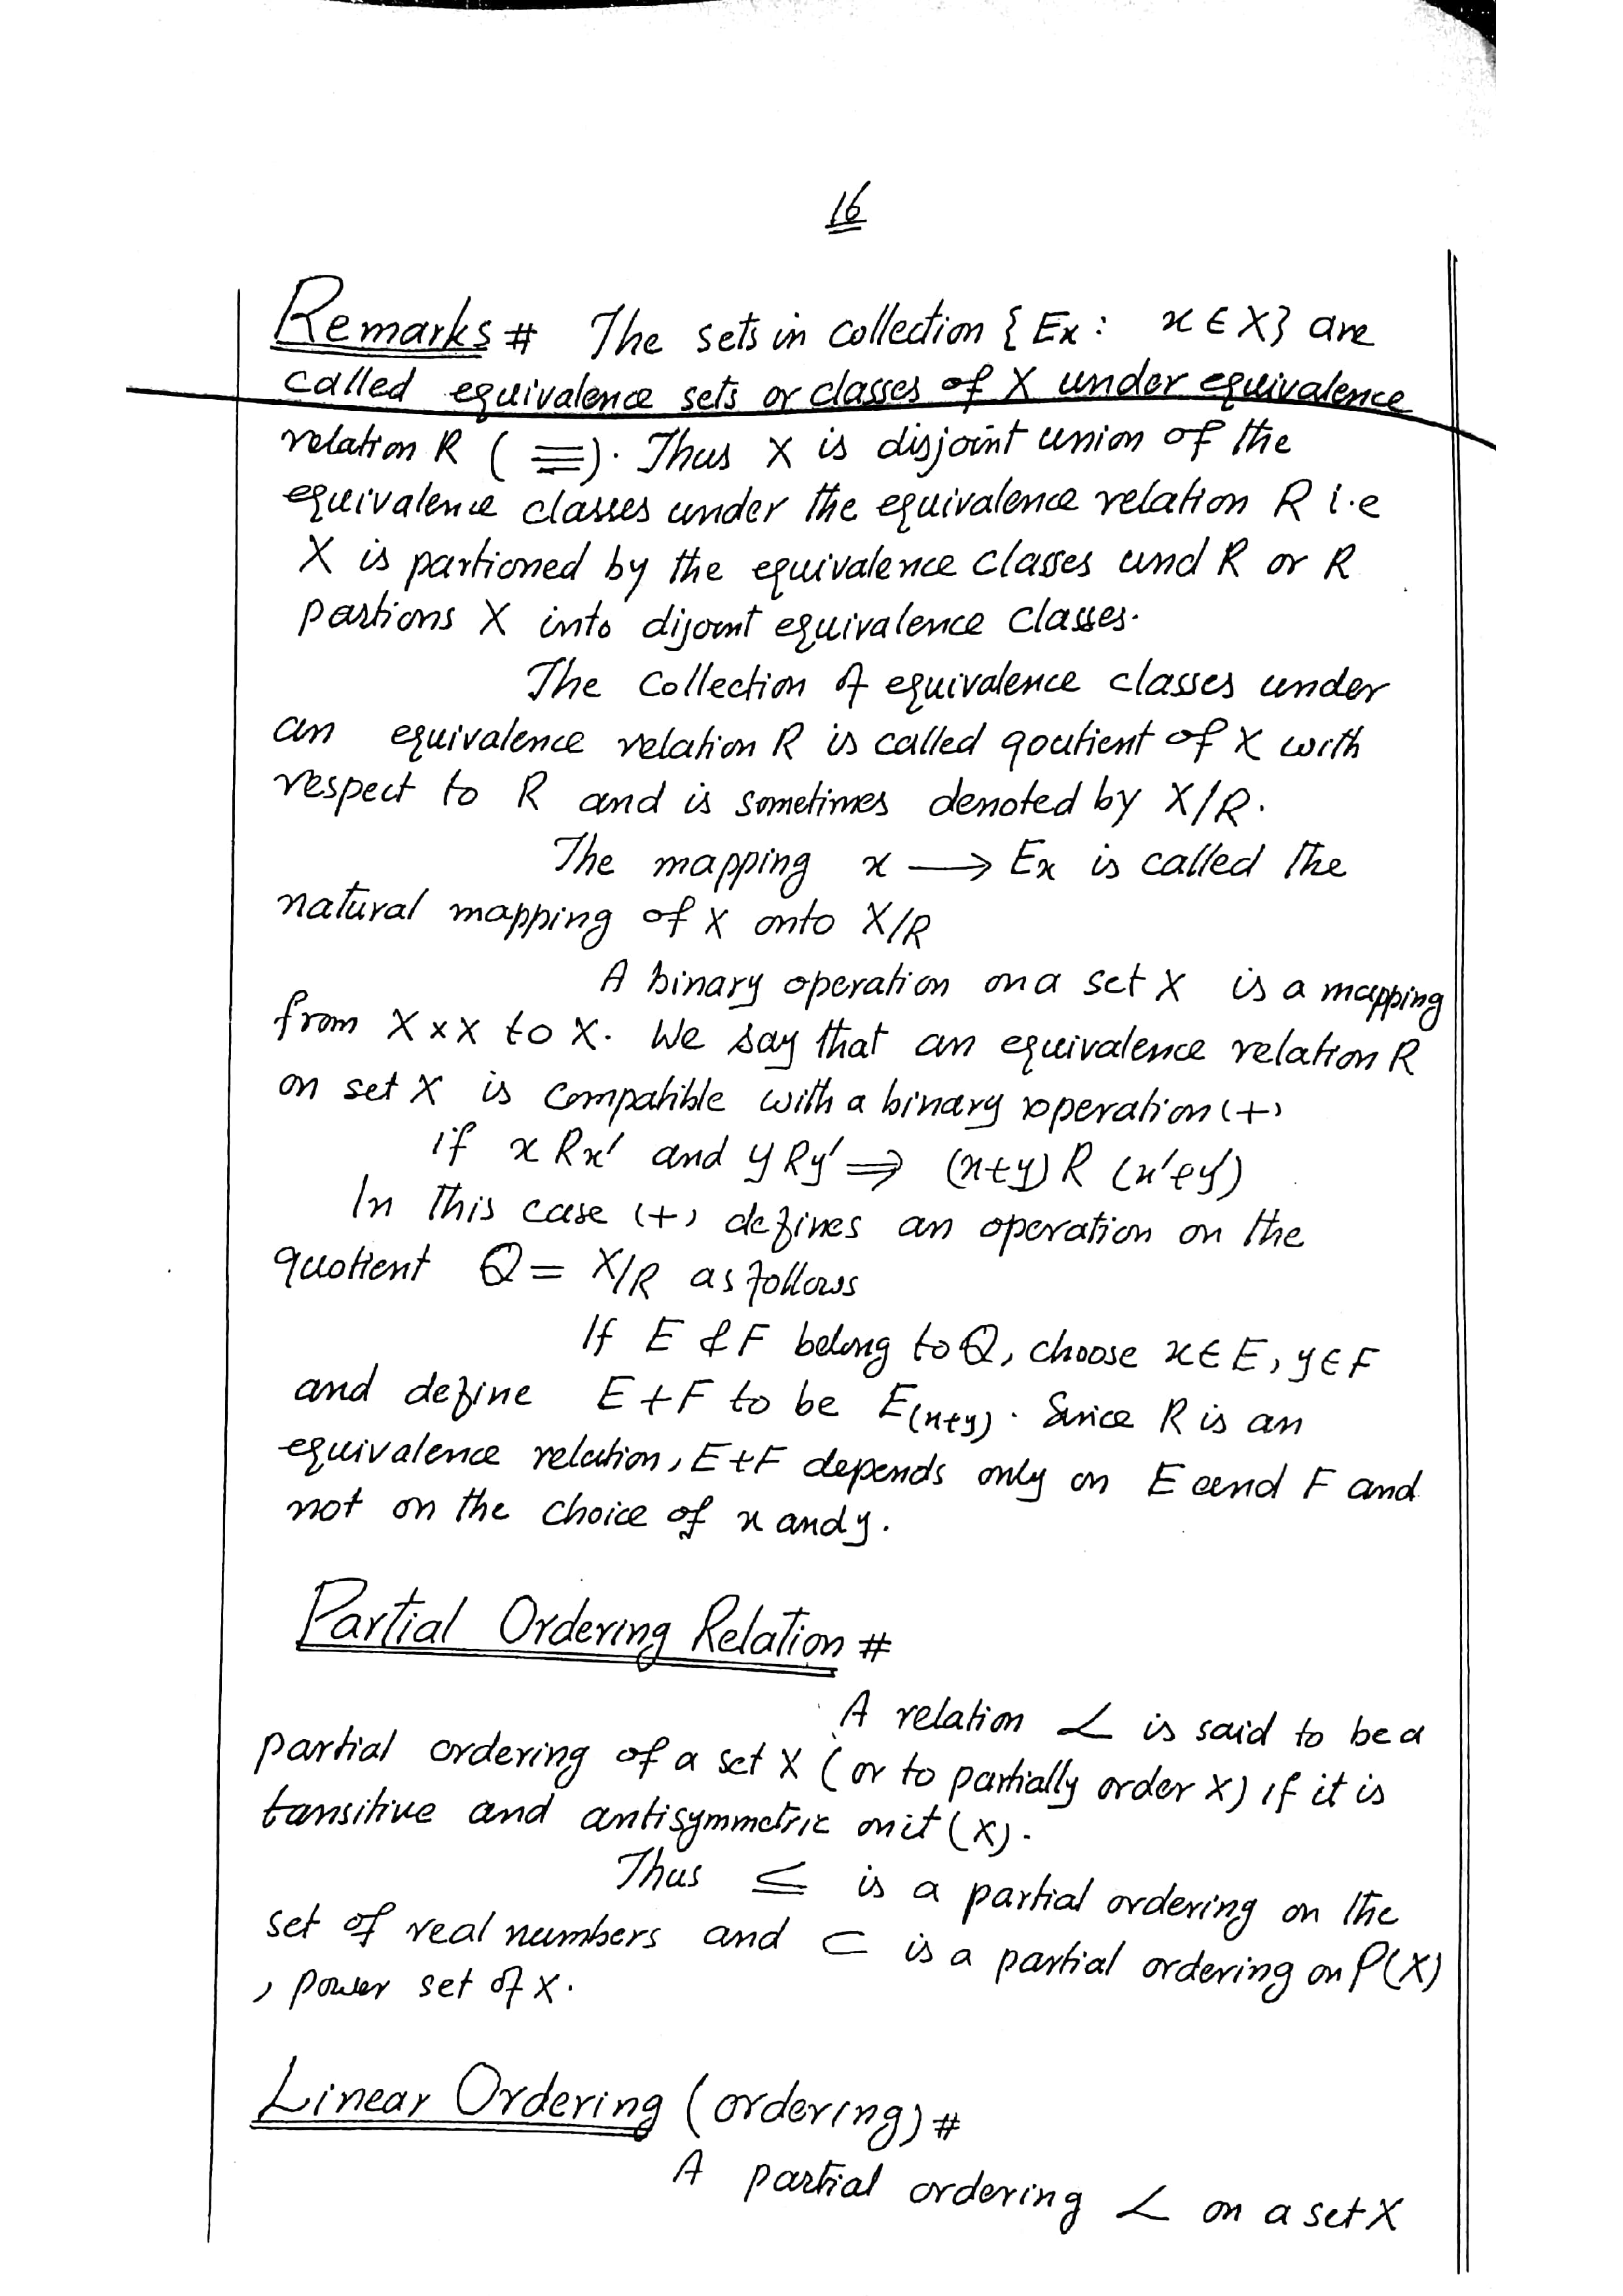 16
Remarks # The sets in collection { Ex : x ∈ X } are
called equivalence sets or classes of X under equivalence
relation R ( ≡ ). Thus X is disjoint union of the
equivalence classes under the equivalence relation R i.e
X is partioned by the equivalence classes und R or R
partions X into dijoint equivalence classes.
The collection of equivalence classes under
an equivalence relation R is called qoutient of X with
respect to R and is sometimes denoted by X/R.
The mapping x ⟶ Ex is called the
natural mapping of X onto X/R
A binary operation on a set X is a mapping
from X × X to X. We say that an equivalence relation R
on set X is compatible with a binary operation (+)
if x R x' and y R y' ⟹ (x+y) R (x'+y')
In this case (+) defines an operation on the
quotient Q = X/R as follows
If E & F belong to Q, choose x ∈ E, y ∈ F
and define E + F to be E(x+y). Since R is an
equivalence relation, E+F depends only on E and F and
not on the choice of x and y.
Partial Ordering Relation #
A relation ∠ is said to be a
partial ordering of a set X (or to partially order X) if it is
tansitive and antisymmetric on it (X).
Thus ≤ is a partial ordering on the
set of real numbers and ⊂ is a partial ordering on P(X)
, power set of X.
Linear Ordering (ordering) #
A partial ordering ∠ on a set X